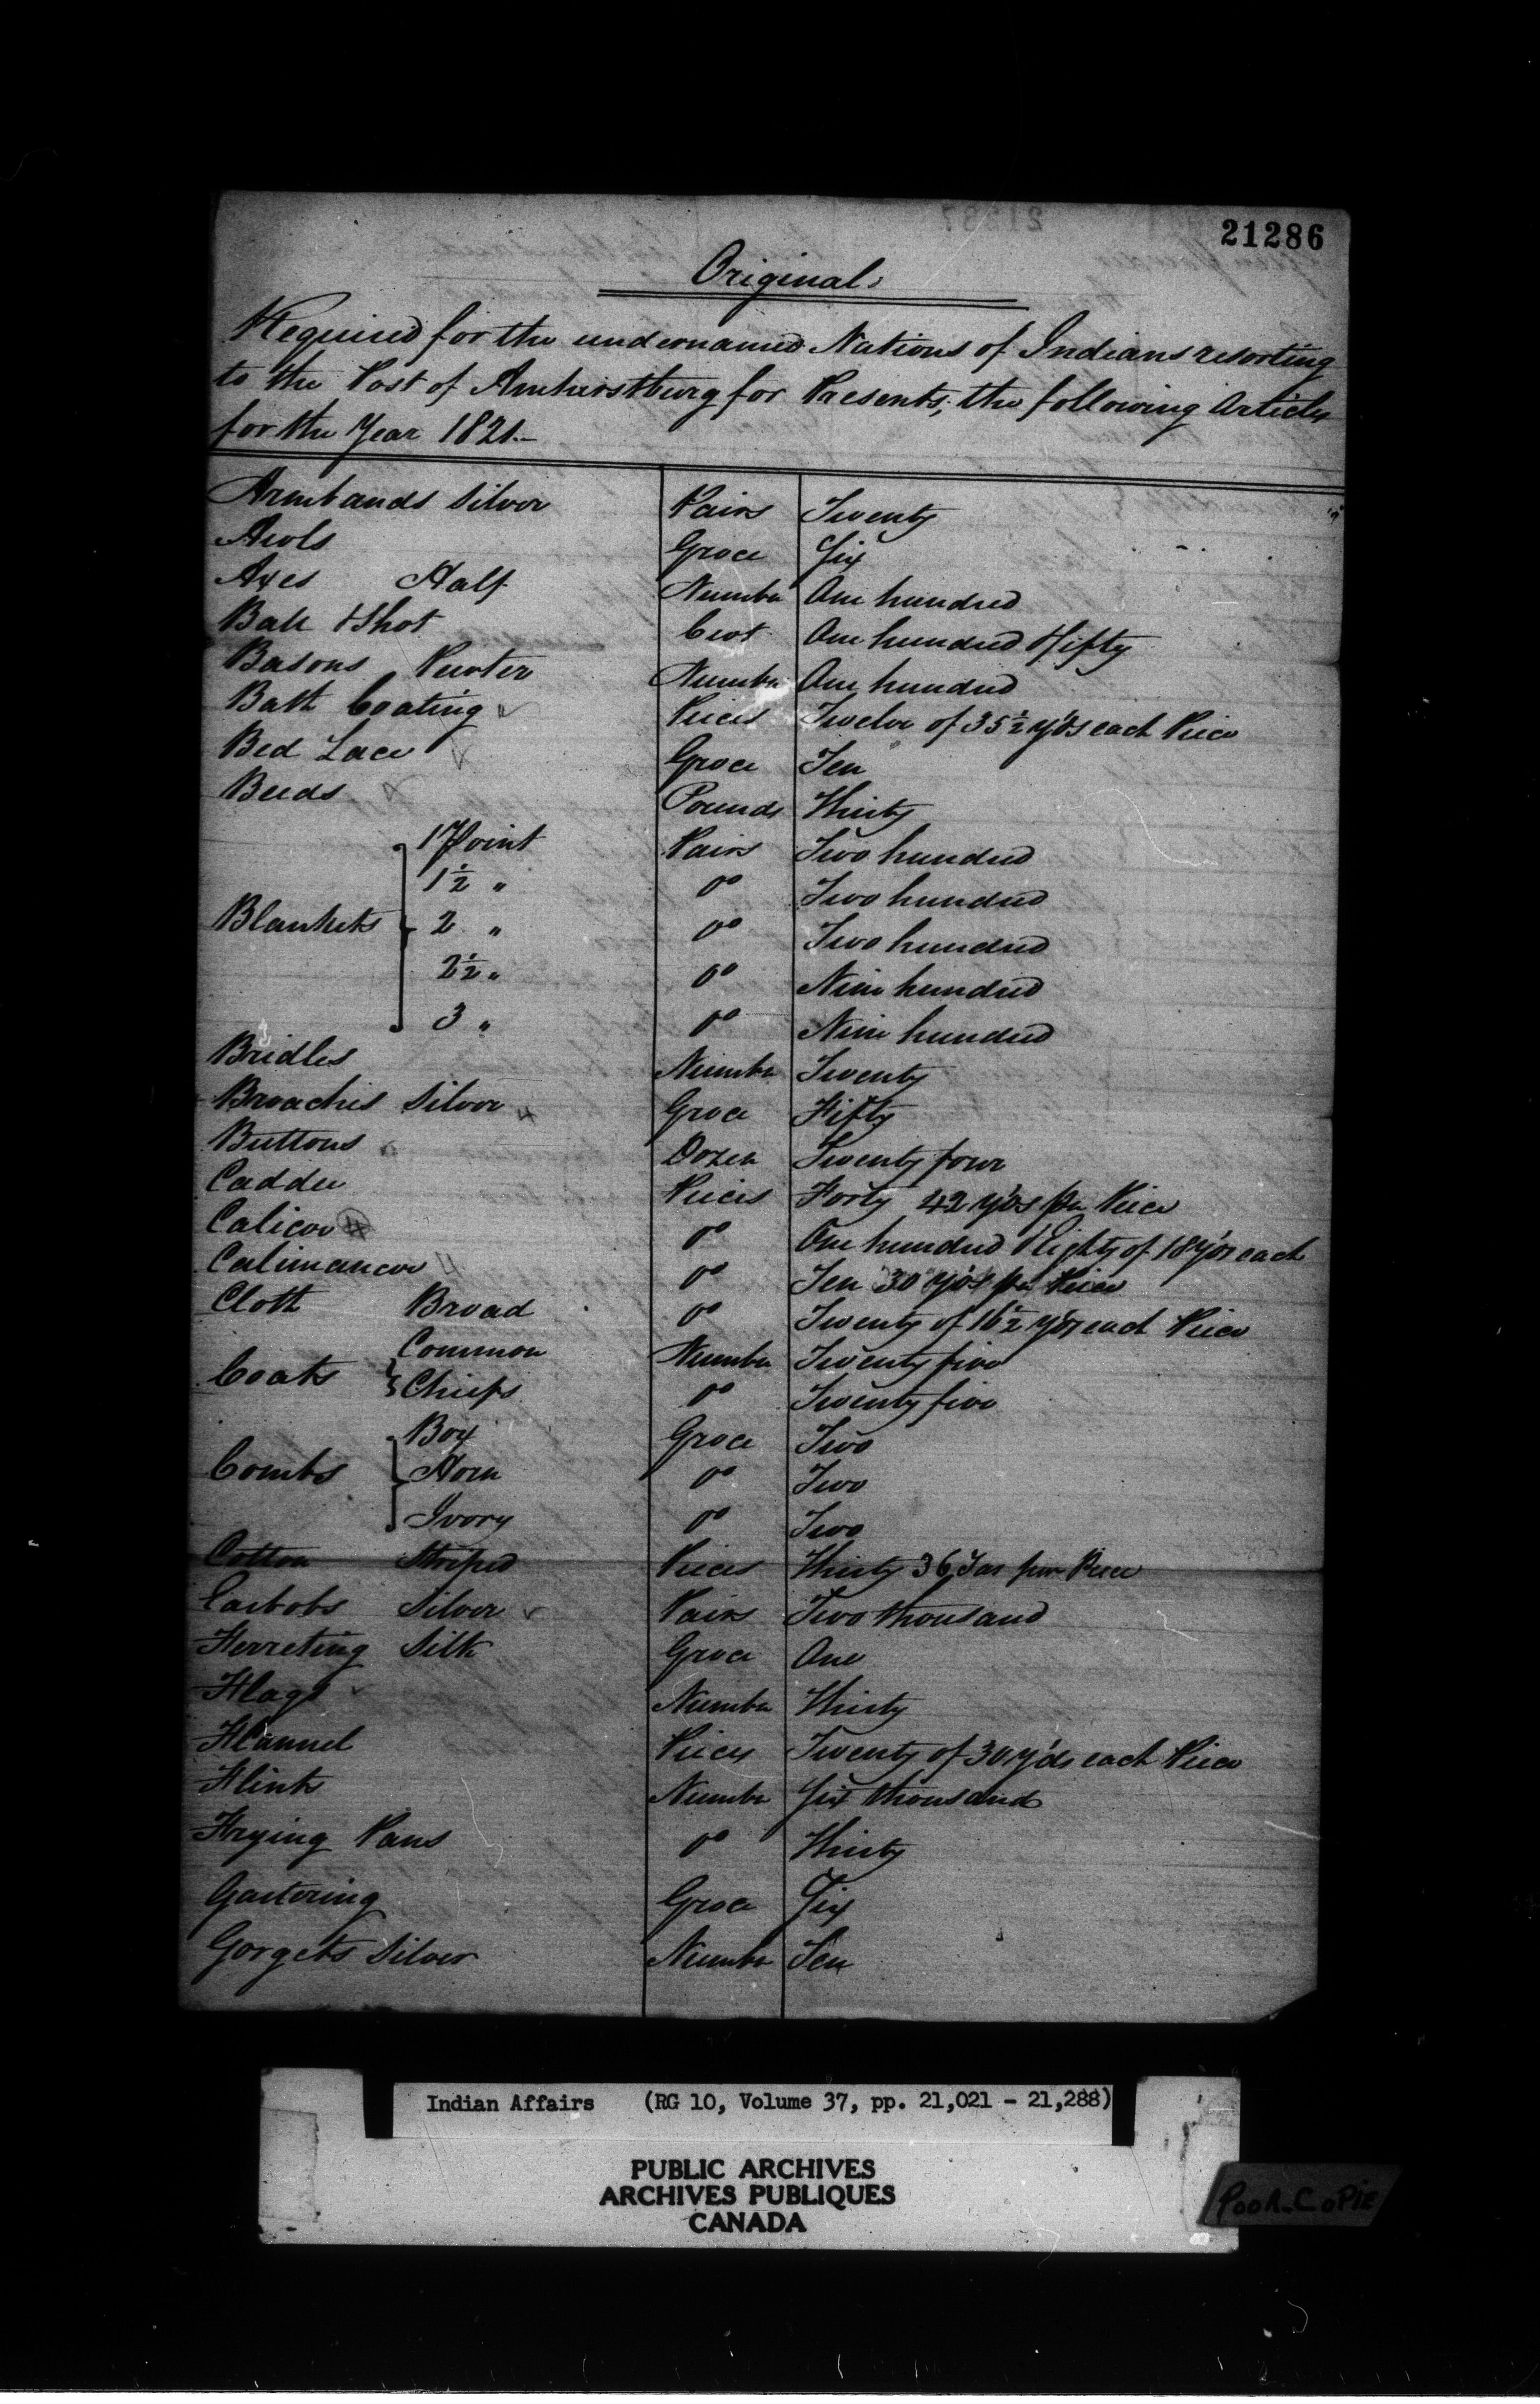 21286
Original
Required for the undernamed Nations of Indians resorting
to the Post of Amherstburg for Presents; the following Articles
for the Year 1821.-
Armbands Silver Pairs Twenty
Awls Groce Six
Axes Half Number One hundred
Ball & Shot Cwt One hundred & fifty
Basons Pewter Number One hundred
Bath Coating Pieces Twelve of 35 1/2 y'ds each Piece
Bed Lace Groce Ten
Beeds Pounds Thirty
1 Point Pairs Two hundred
1 1/2 " Do Two hundred
Blankets 2 " Do Two hundred
2 1/2 " Do Nine hundred
3 " Do Nine hundred
Bridles Number Twenty
Broaches Silver Groce Fifty
Buttons Dozen Twenty four
Caddee Pieces Forty 42 y'ds per Piece
Calicoe Do One hundred & Eighty of 18 y'ds each
Calimancoe Do Ten 30 y'ds per Piece
Cloth Broad Do Twenty of 16 1/2 y'ds each Piece
Coats Common Number Twenty five
Chiefs Do Twenty five
Box Groce Two
Combs Horn Do Two
Ivory Do Two
Cotton Striped Pieces Thirty 36 Yds per Piece
Earbobs Silver Pairs Two thousand
Ferreting Silk Groce One
Flags Number Thirty
Flannel Pieces Twenty of 30 y'ds each Piece
Flints Number Six thousand
Frying Pans Do Thirty
Gartering Groce Six
Gorgets Silver Number Ten
Indian Affairs (RG 10, Volume 37, pp. 21,021 - 21,288)
PUBLIC ARCHIVES
ARCHIVES PUBLIQUES
CANADA
POOR COPIE